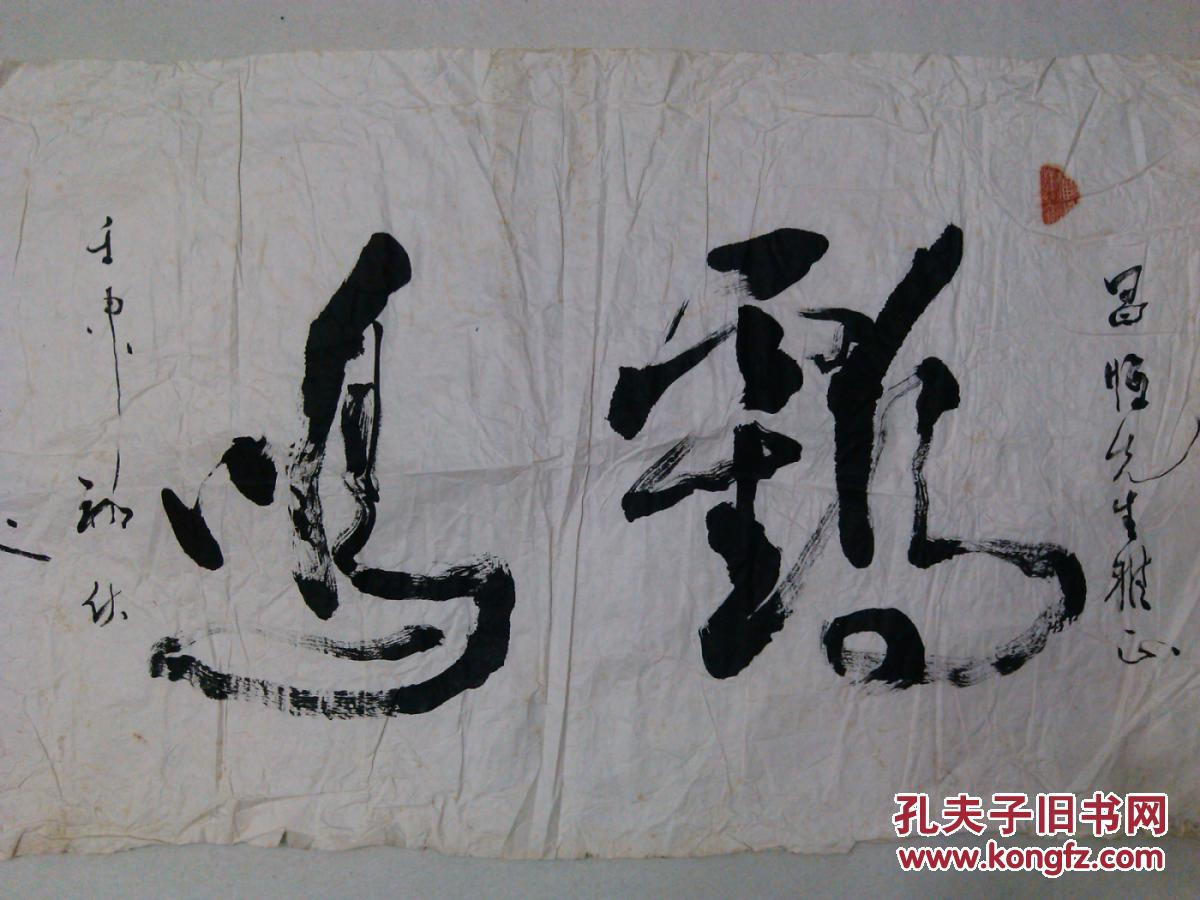 昌恒先生雅正
鶴鳴
壬申
孔夫子旧书网
www.kongfz.com